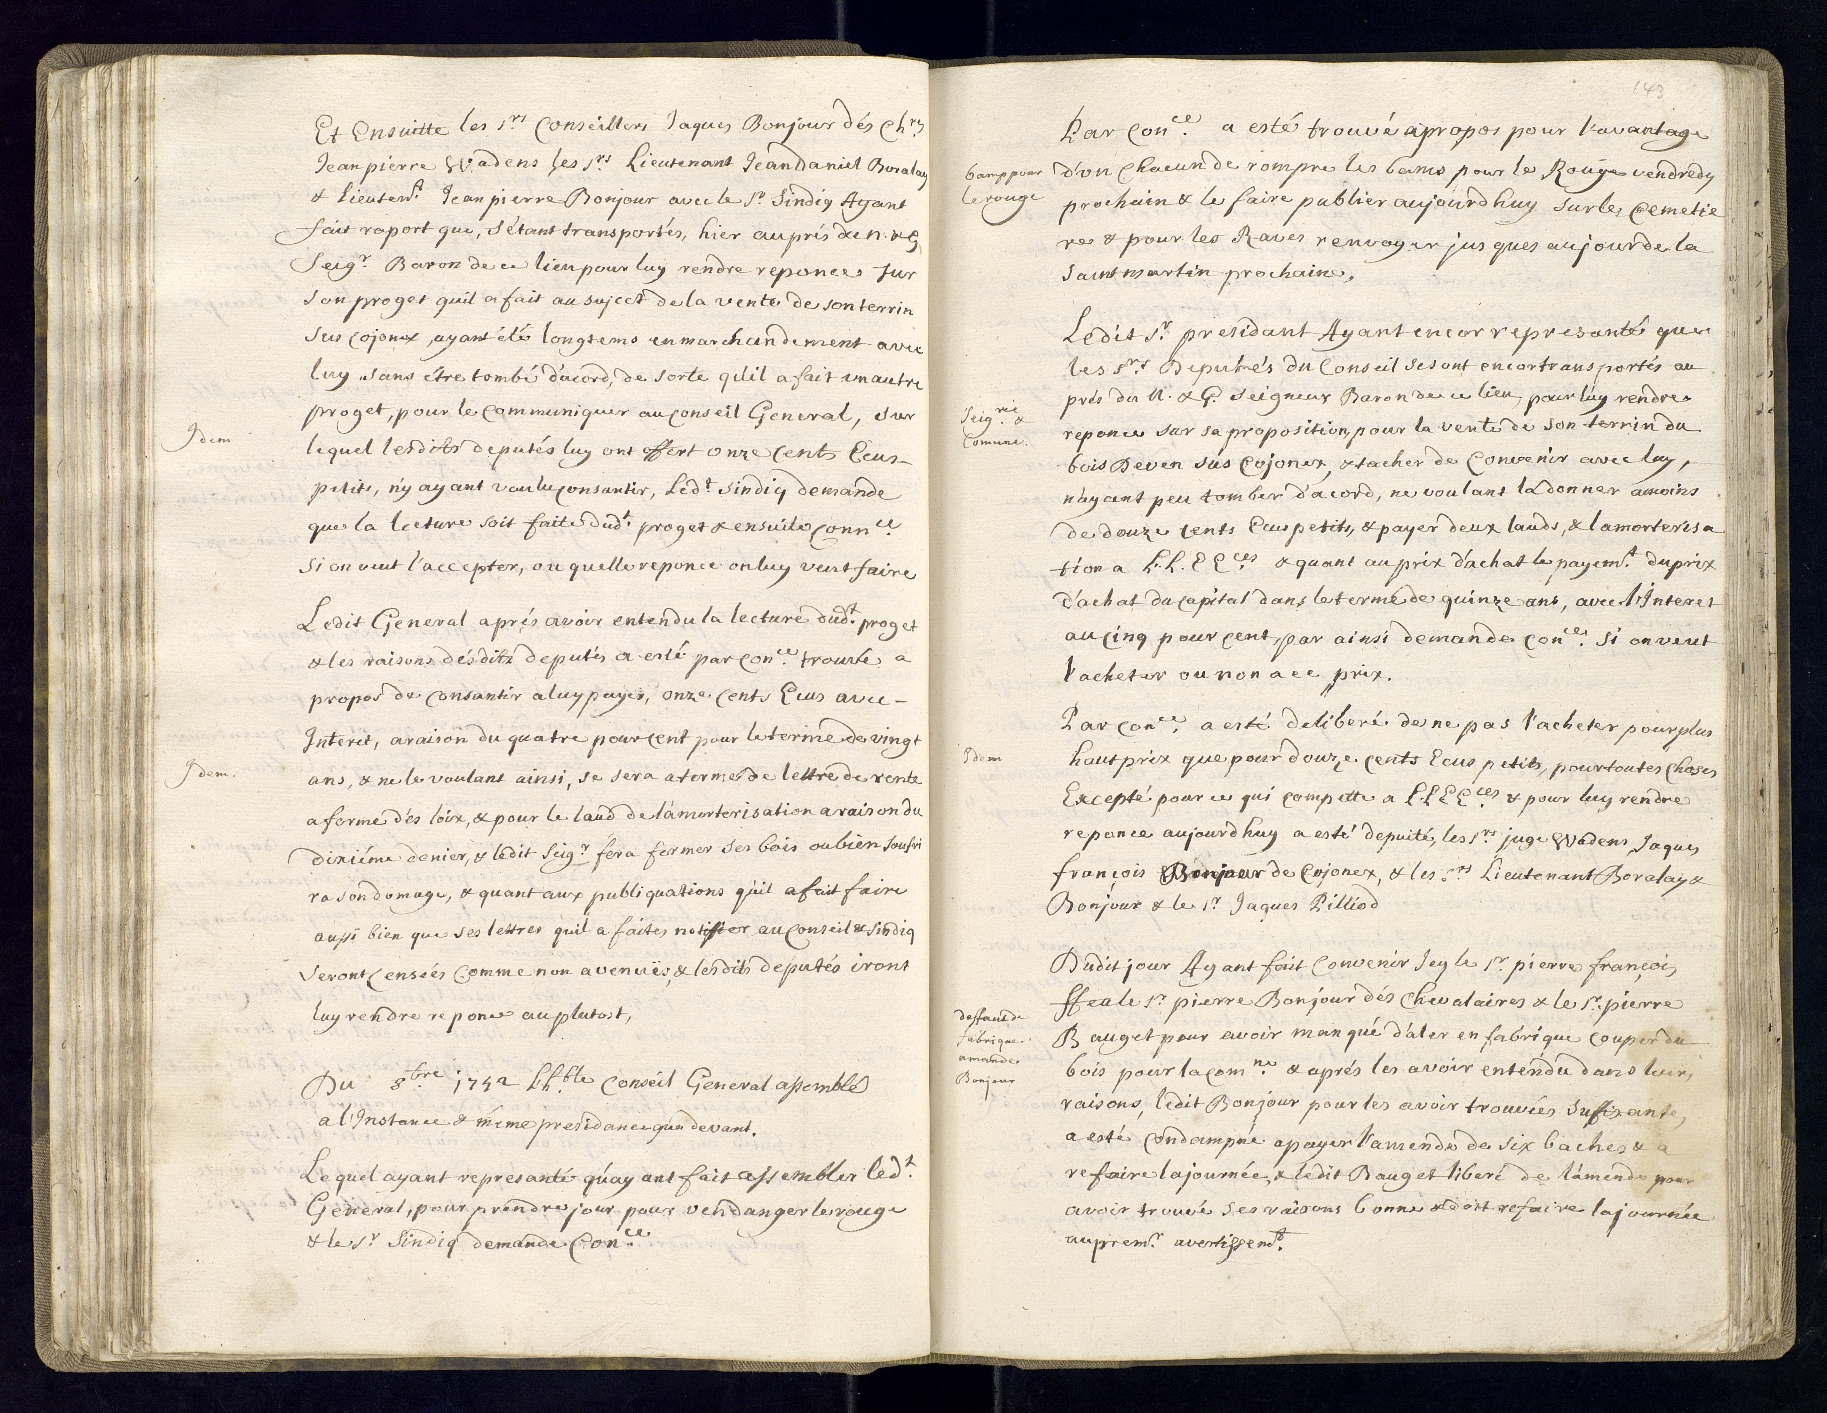 Et Ensuitte les Srs Conseillers Jaques Bonjour dés Chrs
Jean pierre Wadens les Srs Lieutenant Jean Daniel Boralay
& Lieutent Jean pierre Bonjour avec le Sr Sindiq Ayant
fait raport que, s'étant transportés, hier auprés de N. & G.
Seigr Baron de ce lieu pour luy rendre reponce sur
son proget quil a fait au suject de la vente de son terrin
sus Cojonex, ayant été longtems en marchandement avec
luy sans étre tombé d'acord, de sorte qu'il a fait un autre
proget, pour le communiquer au Conseil General, sur
Idem
lequel lesdits deputés luy ont offert onze cents Ecus
petits, n'y ayant voulu consantir, Ledt Sindiq demande
que la lecture soit faite dudt proget & ensuite Connce
si on veut l'accepter, ou quelle reponce on luy veut faire
Ledit General aprés avoir entendu la lecture dudt proget
& les raisons désdits deputés a esté par Conce trouvé a
propos de consantir a luy payer, onze cents Ecus avec
Interet, a raison du quatre pour cent pour le terme de vingt
Idem.
ans, & ne le voulant ainsi, se sera a terme de lettre de rente
a forme dés loix, & pour le laud de l'amorterisation a raison du
dixiéme denier, & ledit Seigr fera fermer ses bois ou bien soufri
ra son domage, & quant aux publiquations qu'il a fait faire
aussi bien que ses lettres qu'il a faites notifier au Conseil & Sindiq
seront censées comme non avenuës, & lesdits deputés iront
luy rendre reponce au plutost,
Du 3bre 1742 LhHble Conseil General assemblé
a l'Instance & méme presidance que devant.
Lequel ayant represanté qu'ayant fait assembler ledt
General, pour prendre jour pour vendanger le rouge
& le Sr Sindiq demande Conce
143
Par Conce a esté trouvé apropos pour l'avantage
bamp pour
le rouge
d'vn chacun de rompre les bams pour le Rouge vendredy
prochain & le faire publier aujourdhuy sur les cemetie
res & pour les Raves renvoyer jusques au jour de la
saint martin prochaine.
Ledit Sr presidant Ayant encor represanté que
les Srs Deputés du Conseil se sont encor transportés au
prés du N. & G. Seigneur Baron de ce lieu, pour luy rendre
Seigrie &
Comune.
reponce sur sa proposition pour la vente de son terrin du
bois Deven sus Cojonex, & tacher de Convenir avec luy,
n'ayant peu tomber d'acord, ne voulant la donner a moins
de douze cents Ecus petits, & payer deux lauds, & l'amorterisa
tion a L.L.EEces & quant au prix d'achat le payemt du prix
d'achat du capital dans le terme de quinze ans, avec l'Interet
au cinq pour cent, par ainsi demande Conce si on veut
l'acheter ou non a ce prix.
Par Conce a esté deliberé de ne pas l'acheter pour plus
Idem
haut prix que pour douze cents Ecus petits, pour toutes choses
Excepté pour ce qui compette a LLEEces & pour luy rendre
reponce aujourdhuy a esté deputé, les Srs juge Wadens, Jaques
françois Bonjour de Cojonex, & les Srs Lieutenant Boralay &
Bonjour & le Sr Jaques Pilliod
Dudit jour Ayant fait Convenir Icy le Sr pierre françois
ffeu le Sr pierre Bonjour dés Chevalaires & le Sr pierre
deffaut de
fabrique
amande
Bonjour
Bauget pour avoir manqué d'aler en fabrique couper du
bois pour la comne & aprés les avoir entendu dans leurs
raisons, ledit Bonjour pour les avoir trouvées suffisante,
a esté condampné a payer l'amende de six baches & a
refaire la journée, & ledit Bauget liberé de l'amende pour
avoir trouvé ses raisons bonne & doit refaire la journée
au premr avertissemt.